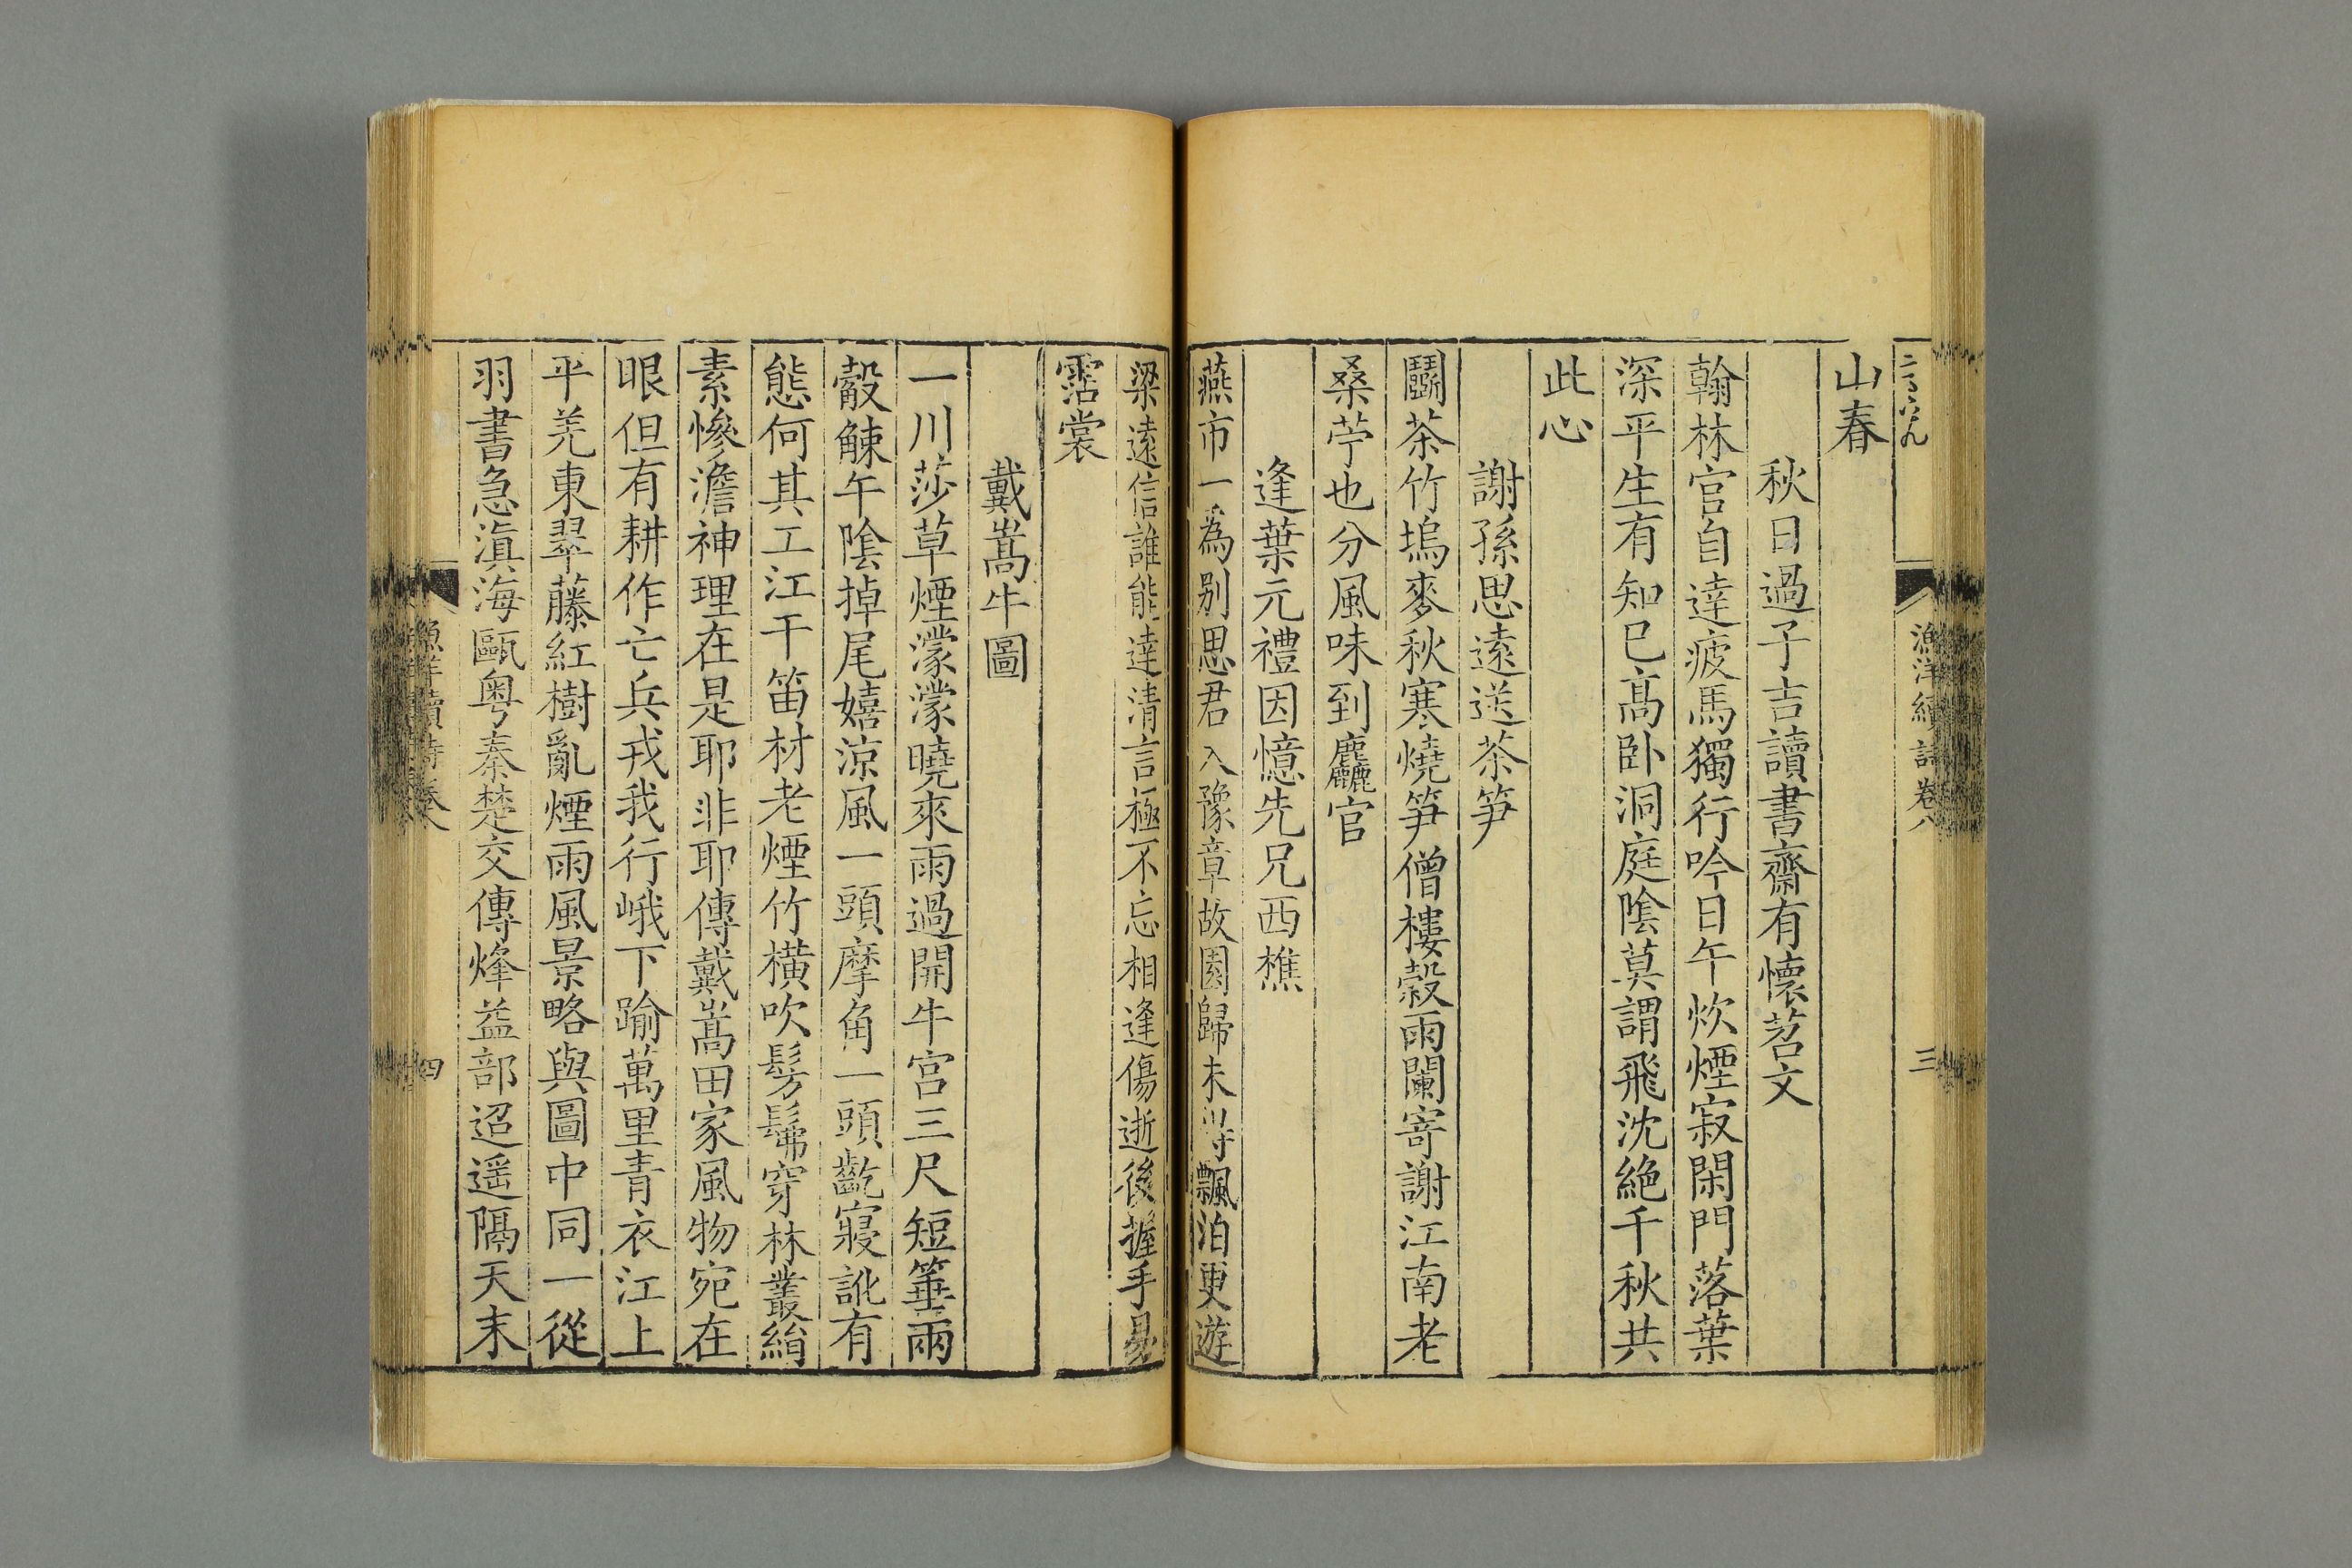 漁洋續詩卷八
三
山春
秋日過子吉讀書齋有懷苕文
翰林官自達疲馬獨行吟日午炊煙寂閑門落葉
深平生有知已高卧洞庭陰莫謂飛沈絶千秋共
此心
謝孫思遠送茶笋
鬬茶竹塢麥秋寒燒笋僧樓穀雨闌寄謝江南老
桑苧也分風味到麤官
逢葉元禮因憶先兄西樵
燕市一為别思君入豫章故園歸未得飄泊更遊
梁遠信誰能達清言極不忘相逢傷逝後握手易
霑裳
戴嵩牛圖
一川莎草煙濛濛曉來雨過開牛宫三尺短箠兩
觳觫午陰掉尾嬉涼風一頭摩角一頭齕寢訛有
態何其工江干笛材老煙竹橫吹髣髴穿林叢絹
素慘澹神理在是耶非耶傳戴嵩田家風物宛在
眼但有耕作亡兵戎我行峨下踰萬里青衣江上
平羌東翠藤紅樹亂煙雨風景略與圖中同一從
羽書急滇海甌粤秦楚交傳烽益部迢遥隔天末
漁洋續詩卷八
四